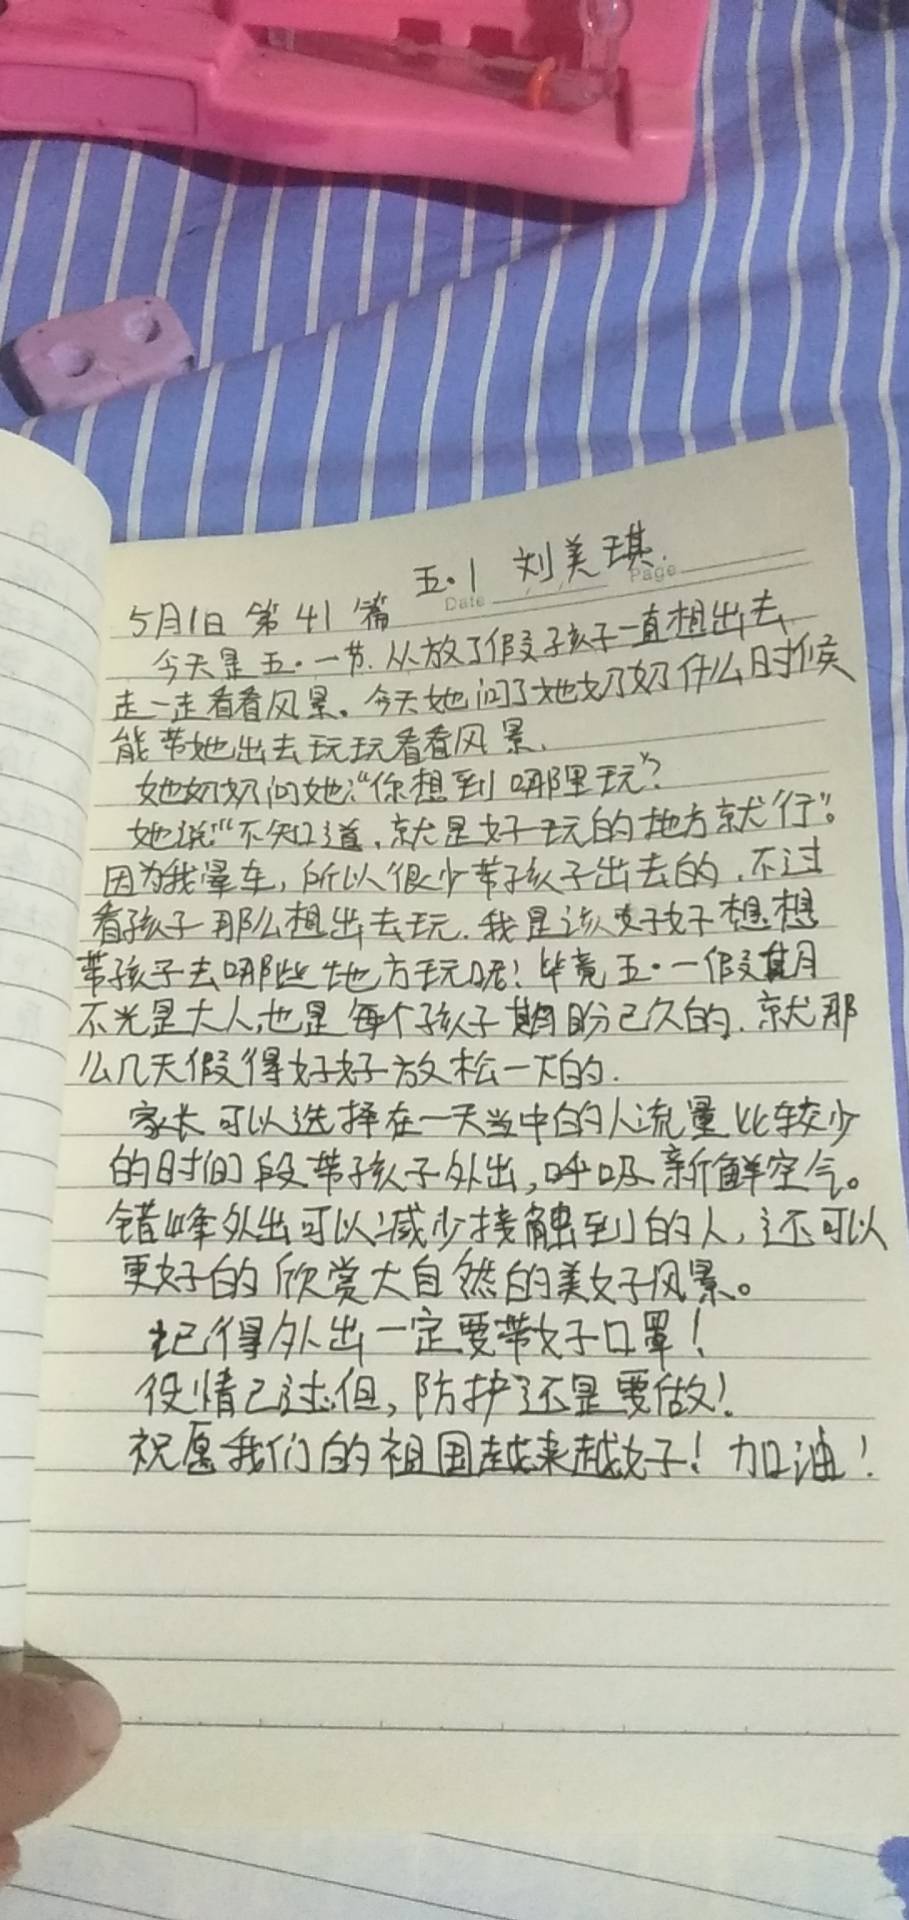 五·1 刘美琪.
Date Page
5月1日 第41篇
今天是五·一节.从放了假孩子一直想出去
走一走看看风景。今天她问了她奶奶什么时候
能带她出去玩玩看看风景.
她奶奶问她:“你想到哪里玩”?
她说“不知道,就是好玩的地方就行”。
因为我晕车,所以很少带孩子出去的.不过
看孩子那么想出去玩.我是该好好想想
带孩子去哪些地方玩呢!毕竟五·一假期
不光是大人,也是每个孩子期盼已久的.就那
么几天假得好好放松一下的.
家长可以选择在一天当中的人流量比较少
的时间段带孩子外出,呼吸新鲜空气。
错峰外出可以减少接触到的人,还可以
更好的欣赏大自然的美好风景。
记得外出一定要带好口罩!
役情已过但,防护还是要做!
祝愿我们的祖国越来越好!加油!